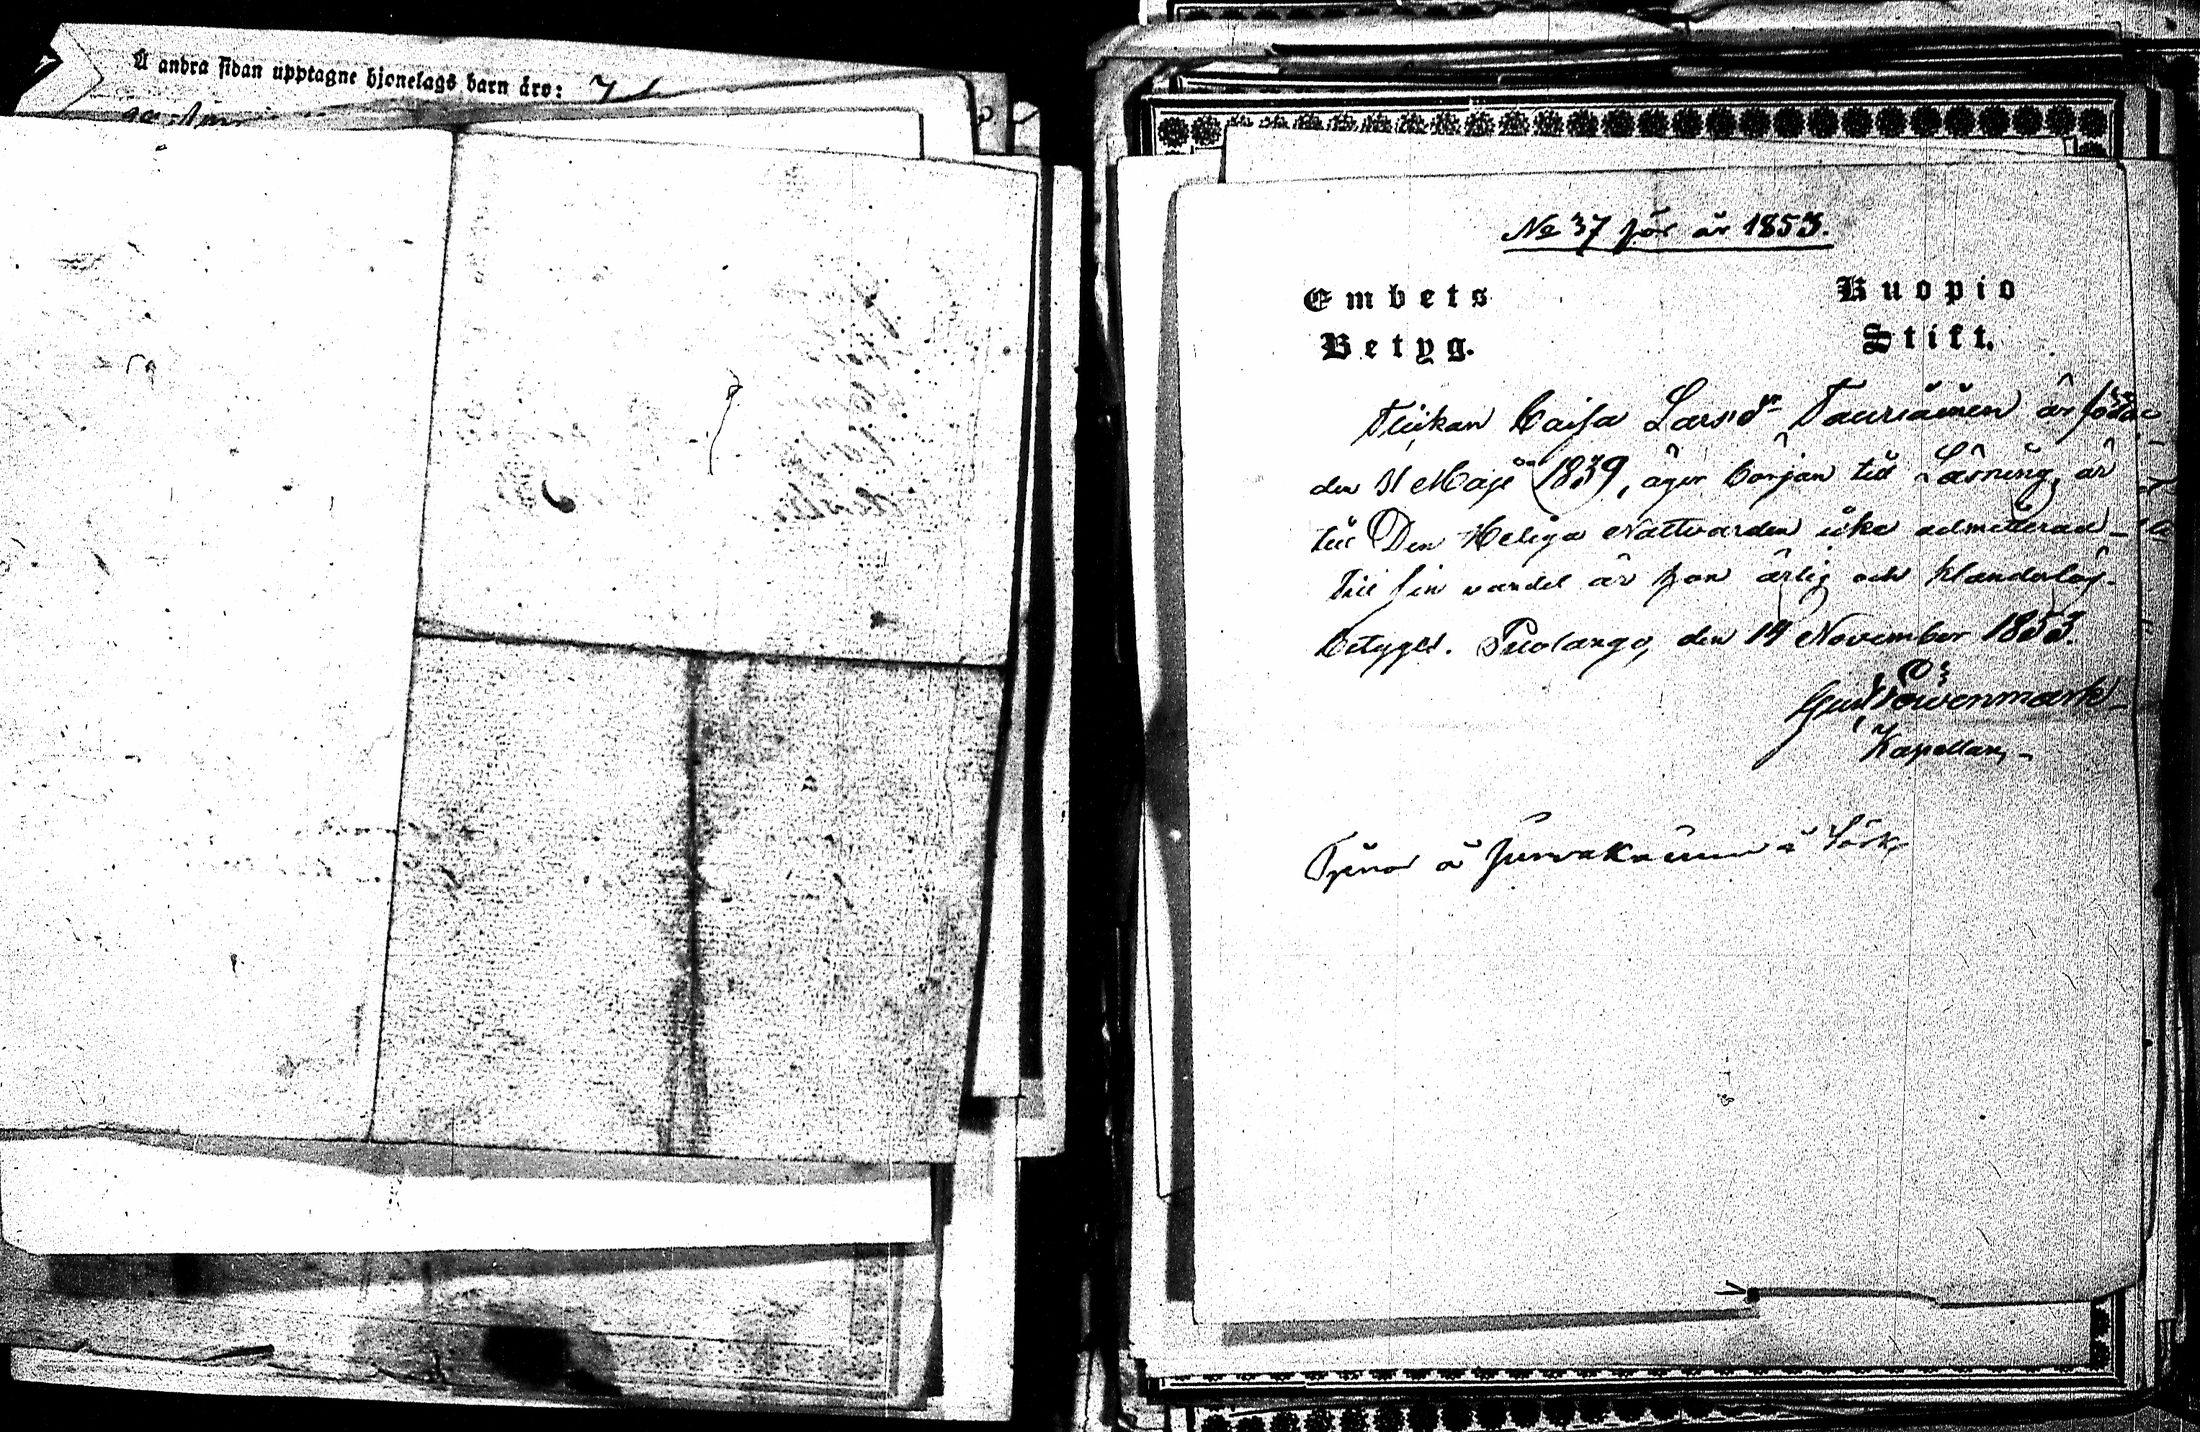 Å andra sidan upptagne hjonelags barn äro:
No 37 för år 1853.
Embets Betyg.
Kuopio Stift.
Flickan Caisa Larsdr Tauriainen är född
den 31 Maji 1839, äger början till Läsning, är
till Den Heliga Nattvarden icke admitterad
Till sin vandel är hon ärlig och klanderlös.
betygas. Puolango, den 14 November 1853.
Gust Löwenmark
Kapellan,
Tjenar å